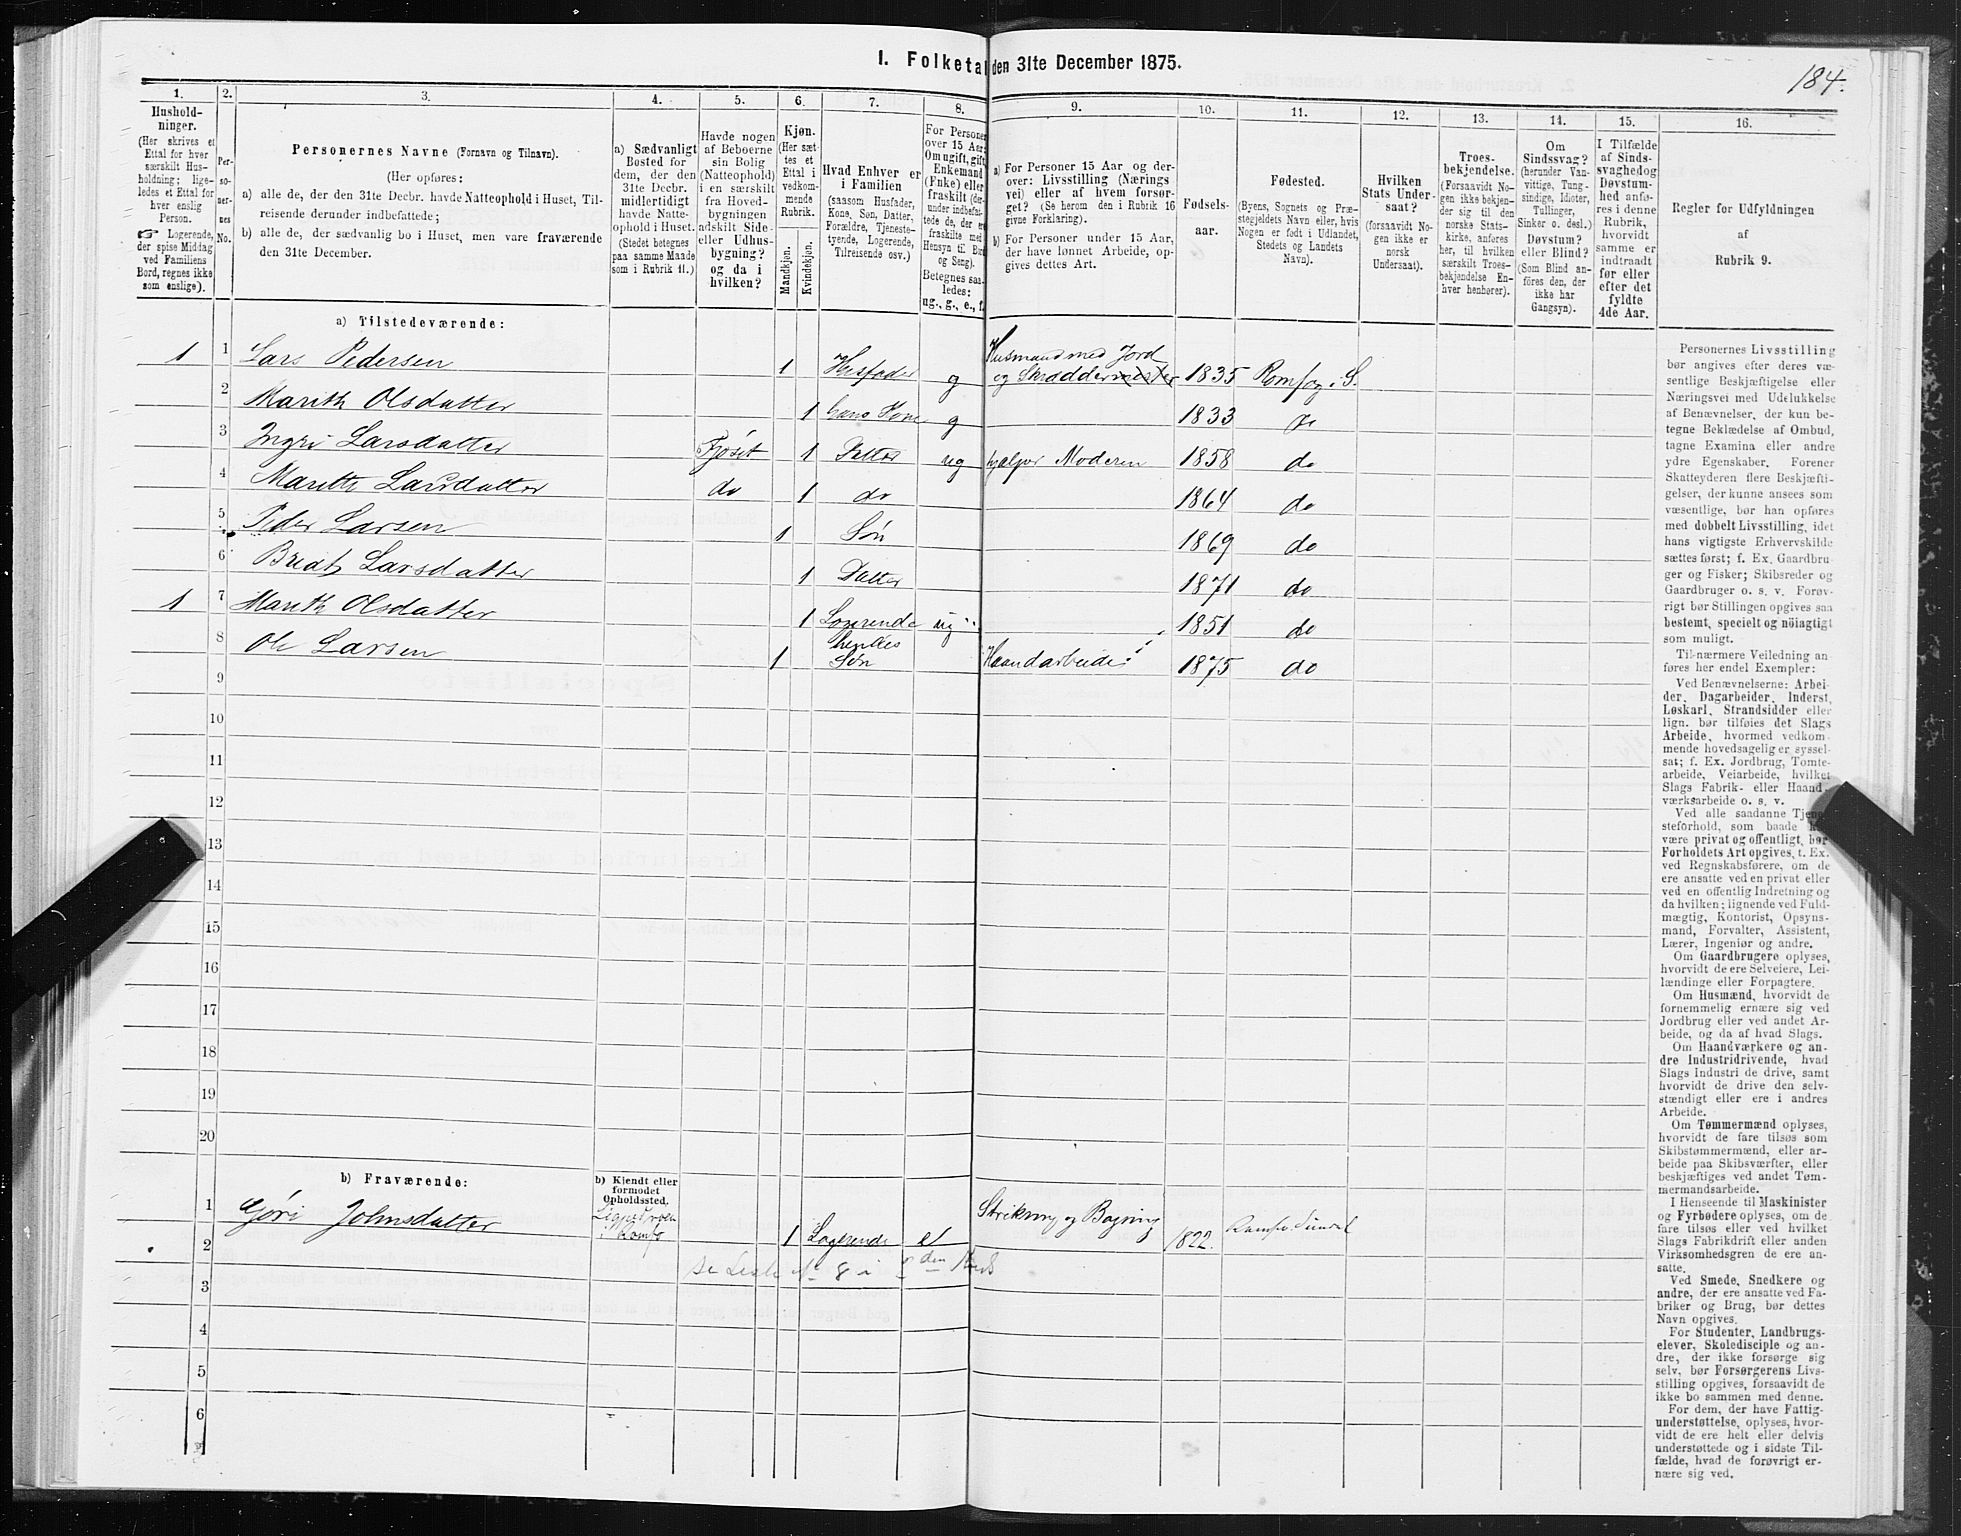 I. Folketal den 31te December 1875.
184.
1. 2. 3. 4. 5. 6. 7. 8. 9. 10. 11. 12. 13. 14. 15. 16.
Hushold-
ninger.
(Her skrives et
Ettal for hver
særskilt Hus-
holdning; lige-
ledes et Ettal for
hver enslig
Person.
☞ Logerende,
der spise Middag
ved Familiens
Bord, regnes ikke
som enslige).
Per-
so-
ner-
nes
No.
Personernes Navne (Fornavn og Tilnavn).
(Her opføres:
a) alle de, der den 31te Decbr. havde Natteophold i Huset, Til-
reisende derunder indbefattede;
b) alle de, der sædvanlig bo i Huset, men vare fraværende
den 31te December.
a) Sædvanligt
Bosted for
dem, der den
31te Decbr.
midlertidigt
havde Natte-
ophold i Huset.
(Stedet betegnes
paa samme Maade
som i Rubrik 11.)
Havde nogen
af Beboerne
sin Bolig
(Natteophold)
i en særskilt
fra Hoved-
bygningen
adskilt Side-
eller Udhus-
bygning?
og da i
hvilken?
Kjøn.
(Her sæt-
tes et
Ettal i
vedkom-
mende
Rubrik.
Mandkjøn.
Kvindekjøn.
Hvad Enhver er
i Familien
(saasom Husfader,
Kone, Søn, Datter,
Forældre, Tjeneste-
tyende, Logerende,
Tilreisende osv.)
For Personer
over 15 Aar:
Om ugift, gift,
Enkemand
(Enke) eller
fraskilt (der-
under indbefat-
tede de, der ere
fraskilte med
Hensyn til Bord
og Seng).
Betegnes saa-
ledes:
ug., g., e., f.
a) For Personer 15 Aar og der-
over: Livsstilling (Nærings-
vei) eller af hvem forsør-
get? (Se herom den i Rubrik 16
givne Forklaring).
b) For Personer under 15 Aar,
der have lønnet Arbeide, op-
gives dettes Art.
Fødsels-
aar.
Fødested.
(Byens, Sognets og Præ-
stegjeldets Navn eller, hvis
Nogen er født i Udlandet,
Stedets og Landets
Navn).
Hvilken
Stats Under-
saat?
(forsaavidt No-
gen ikke er
norsk
Undersaat).
Troes-
bekjendelse.
(Forsaavidt No-
gen ikke bekjen-
der sig til den
norske Stats-
kirke, anføres
her, til hvilken
særskilt Troes-
bekjendelse En-
hver henhører).
Om
Sindssvag?
(herunder Van-
vittige, Tung-
sindige, Idioter,
Tullinger,
Sinker o. desl.)
Døvstum?
eller Blind?
(Som Blind an-
føres den, der
ikke har
Gangsyn).
I Tilfælde
af Sinds-
svaghed og
Døvstum-
hed anfø-
res i denne
Rubrik,
hvorvidt
samme er
indtraadt
før eller
efter det
fyldte
4de Aar.
Regler for Udfyldningen
af
Rubrik 9.
a) Tilstedeværende:
1 1 Lars Pedersen 1 Husfader g Husmand med Jord
og Skræddermester 1835 Romfog i S.
2 Marith Olsdatter 1 hans Kone g 1833 do
3 Ingri Larsdatter Fjøset 1 Datter ug hjælper Moderen 1858 do
4 Marith Larsdatter do 1 do 1864 do
5 Peder Larsen 1 Søn 1869 do
6 Bredt Larsdatter 1 Datter 1871 do
1 7 Marith Olsdatter 1 Logerende ug 1851 do
8 Ole Larsen 1 hendes
Søn Haandarbeide 1875 do
9
10
11
12
13
14
15
16
17
18
19
20
b) Fraværende:
b) Kjendt eller
formodet
Opholdssted.
1 Gøri Johnsdatter 1 Logerende Strikning og Bagning 1822.
2 Se Liste No 8 i
3
4
5
6
Personernes Livsstilling
bør angives efter deres væ-
sentlige Beskjæftigelse eller
Næringsvei med Udelukkelse
af Benævnelser, der kun be-
tegne Beklædelse af Ombud,
tagne Examina eller andre
ydre Egenskaber. Forener
Skatteyderen flere Beskjæfti-
gelser, der kunne ansees som
væsentlige, bør han opføres
med dobbelt Livsstilling, idet
hans vigtigste Erhvervskilde
sættes først; f. Ex. Gaardbru-
ger og Fisker; Skibsreder og
Gaardbruger o. s. v. Forøv-
rigt bør Stillingen opgives saa
bestemt, specielt og nøiagtigt
som muligt.
Til nærmere Veiledning an-
føres her endel Exempler:
Ved Benævnelserne: Arbei-
der, Dagarbeider, Inderst,
Løskarl, Strandsidder eller
lign. bør tilføies det Slags
Arbeide, hvormed vedkom-
mende hovedsagelig er syssel-
sat; f. Ex. Jordbrug, Tomte-
arbeide, Veiarbeide, hvilket
Slags Fabrik- eller Haand-
værksarbeide o. s. v.
Ved alle saadanne Tjene-
steforhold, som baade
være privat og offentligt, bør
Forholdets Art opgives, t. Ex.
ved Regnskabsførere, om de
ere ansatte ved en privat eller
ved en offentlig Indretning og
da hvilken; lignende ved Fuld-
mægtig, Kontorist, Opsyns-
mand, Forvalter, Assistent,
Lærer, Ingeniør og andre.
Om Gaardbrugere oplyses,
hvorvidt de ere Selveiere, Lei-
lændinge eller Forpagtere.
Om Husmænd, hvorvidt de
fornemmelig ernære sig ved
Jordbrug eller ved andet Ar-
beide, og da af hvad Slags.
Om Haandværkere og an-
dre Industridrivende, hvad
Slags Industri de drive, samt
hvorvidt de drive den selv-
stændigt eller ere i andres
Arbeide.
Om Tømmermænd oplyses,
hvorvidt de fare tilsøs som
Skibstømmermænd, eller ar-
beide paa Skibsværfter, eller
beskjæftiges ved andet Tøm-
mermandsarbeide.
I Henseende til Maskinister
og Fyrbødere oplyses, om de
fare tilsøs eller ved hvilket
Slags Fabrikdrift eller anden
Virksomhedsgren de ere an-
satte.
Ved Smede, Snedkere og
andre, der ere ansatte ved Fa-
briker og Brug, bør dettes
Navn opgives.
For Studenter, Landbrugs-
elever, Skoledisciple og an-
dre, der ikke forsørge sig
selv, bør Forsørgerens Livs-
stilling opgives, forsaavidt de
ikke bo sammen med denne.
For dem, der have Fattig-
understøttelse, oplyses, hvor-
vidt de ere helt eller delvis
understøttede og i sidste Til-
fælde, hvad de forøvrigt er-
nære sig ved.